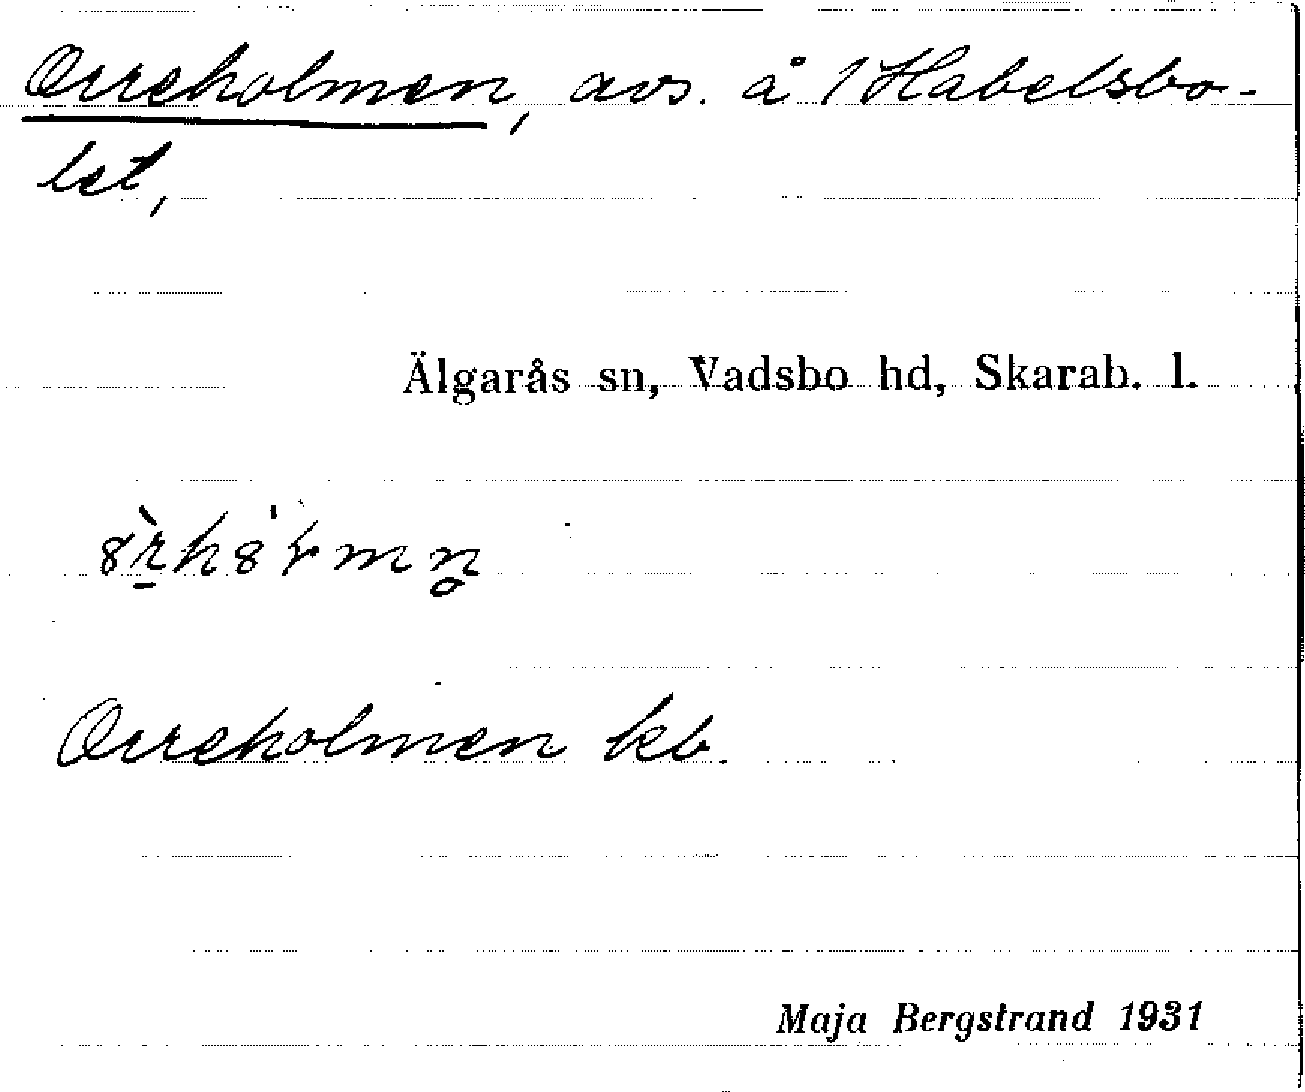 Orreholmen, avs. å 1 Habelsbo-
let,
Älgarås sn, Vadsbo hd, Skarab. l.
Orreholmen kb.
Maja Bergstrand 1931